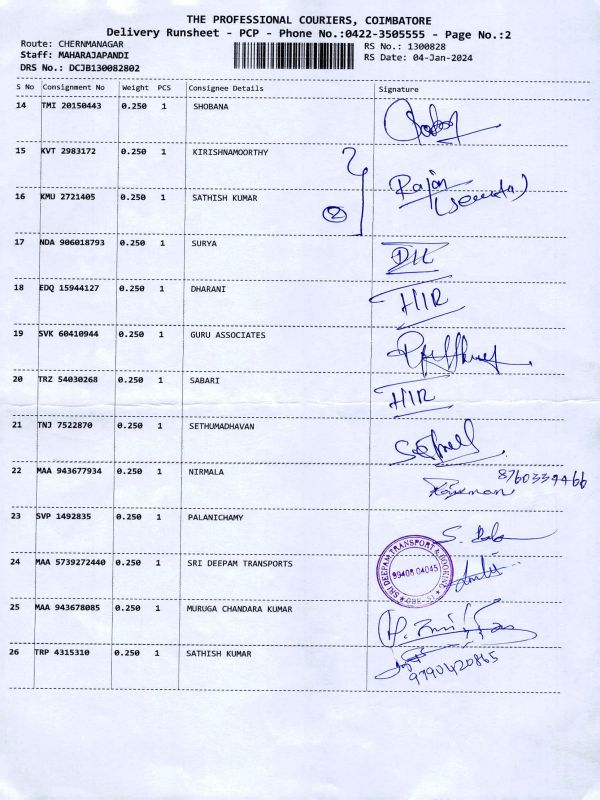 THE PROFESSIONAL COURIERS, COIMBATORE
Delivery Runsheet - PCP - Phone No.:0422-3505555 - Page No.:2
Route: CHERNMANAGAR RS No.: 1300828
Staff: MAHARAJAPANDI RS Date: 04-Jan-2024
DRS No.: DCJB130082802
S No Consignment No Weight PCS Consignee Details Signature
14 TMI 20150443 0.250 1 SHOBANA
15 KVT 2983172 0.250 1 KIRISHNAMOORTHY
Rajan
16 KMU 2721405 0.250 1 SATHISH KUMAR 2
17 NDA 906018793 0.250 1 SURYA
18 EDQ 15944127 0.250 1 DHARANI H/R
19 SVK 60410944 0.250 1 GURU ASSOCIATES
20 TRZ 54030268 0.250 1 SABARI H/R
21 TNJ 7522870 0.250 1 SETHUMADHAVAN
22 MAA 943677934 0.250 1 NIRMALA 8760334466
23 SVP 1492835 0.250 1 PALANICHAMY
24 MAA 5739272440 0.250 1 SRI DEEPAM TRANSPORTS
SRI DEEPAM TRANSPORT & BOOKING
99408 04045
25 MAA 943678085 0.250 1 MURUGA CHANDARA KUMAR
26 TRP 4315310 0.250 1 SATHISH KUMAR
9790420865